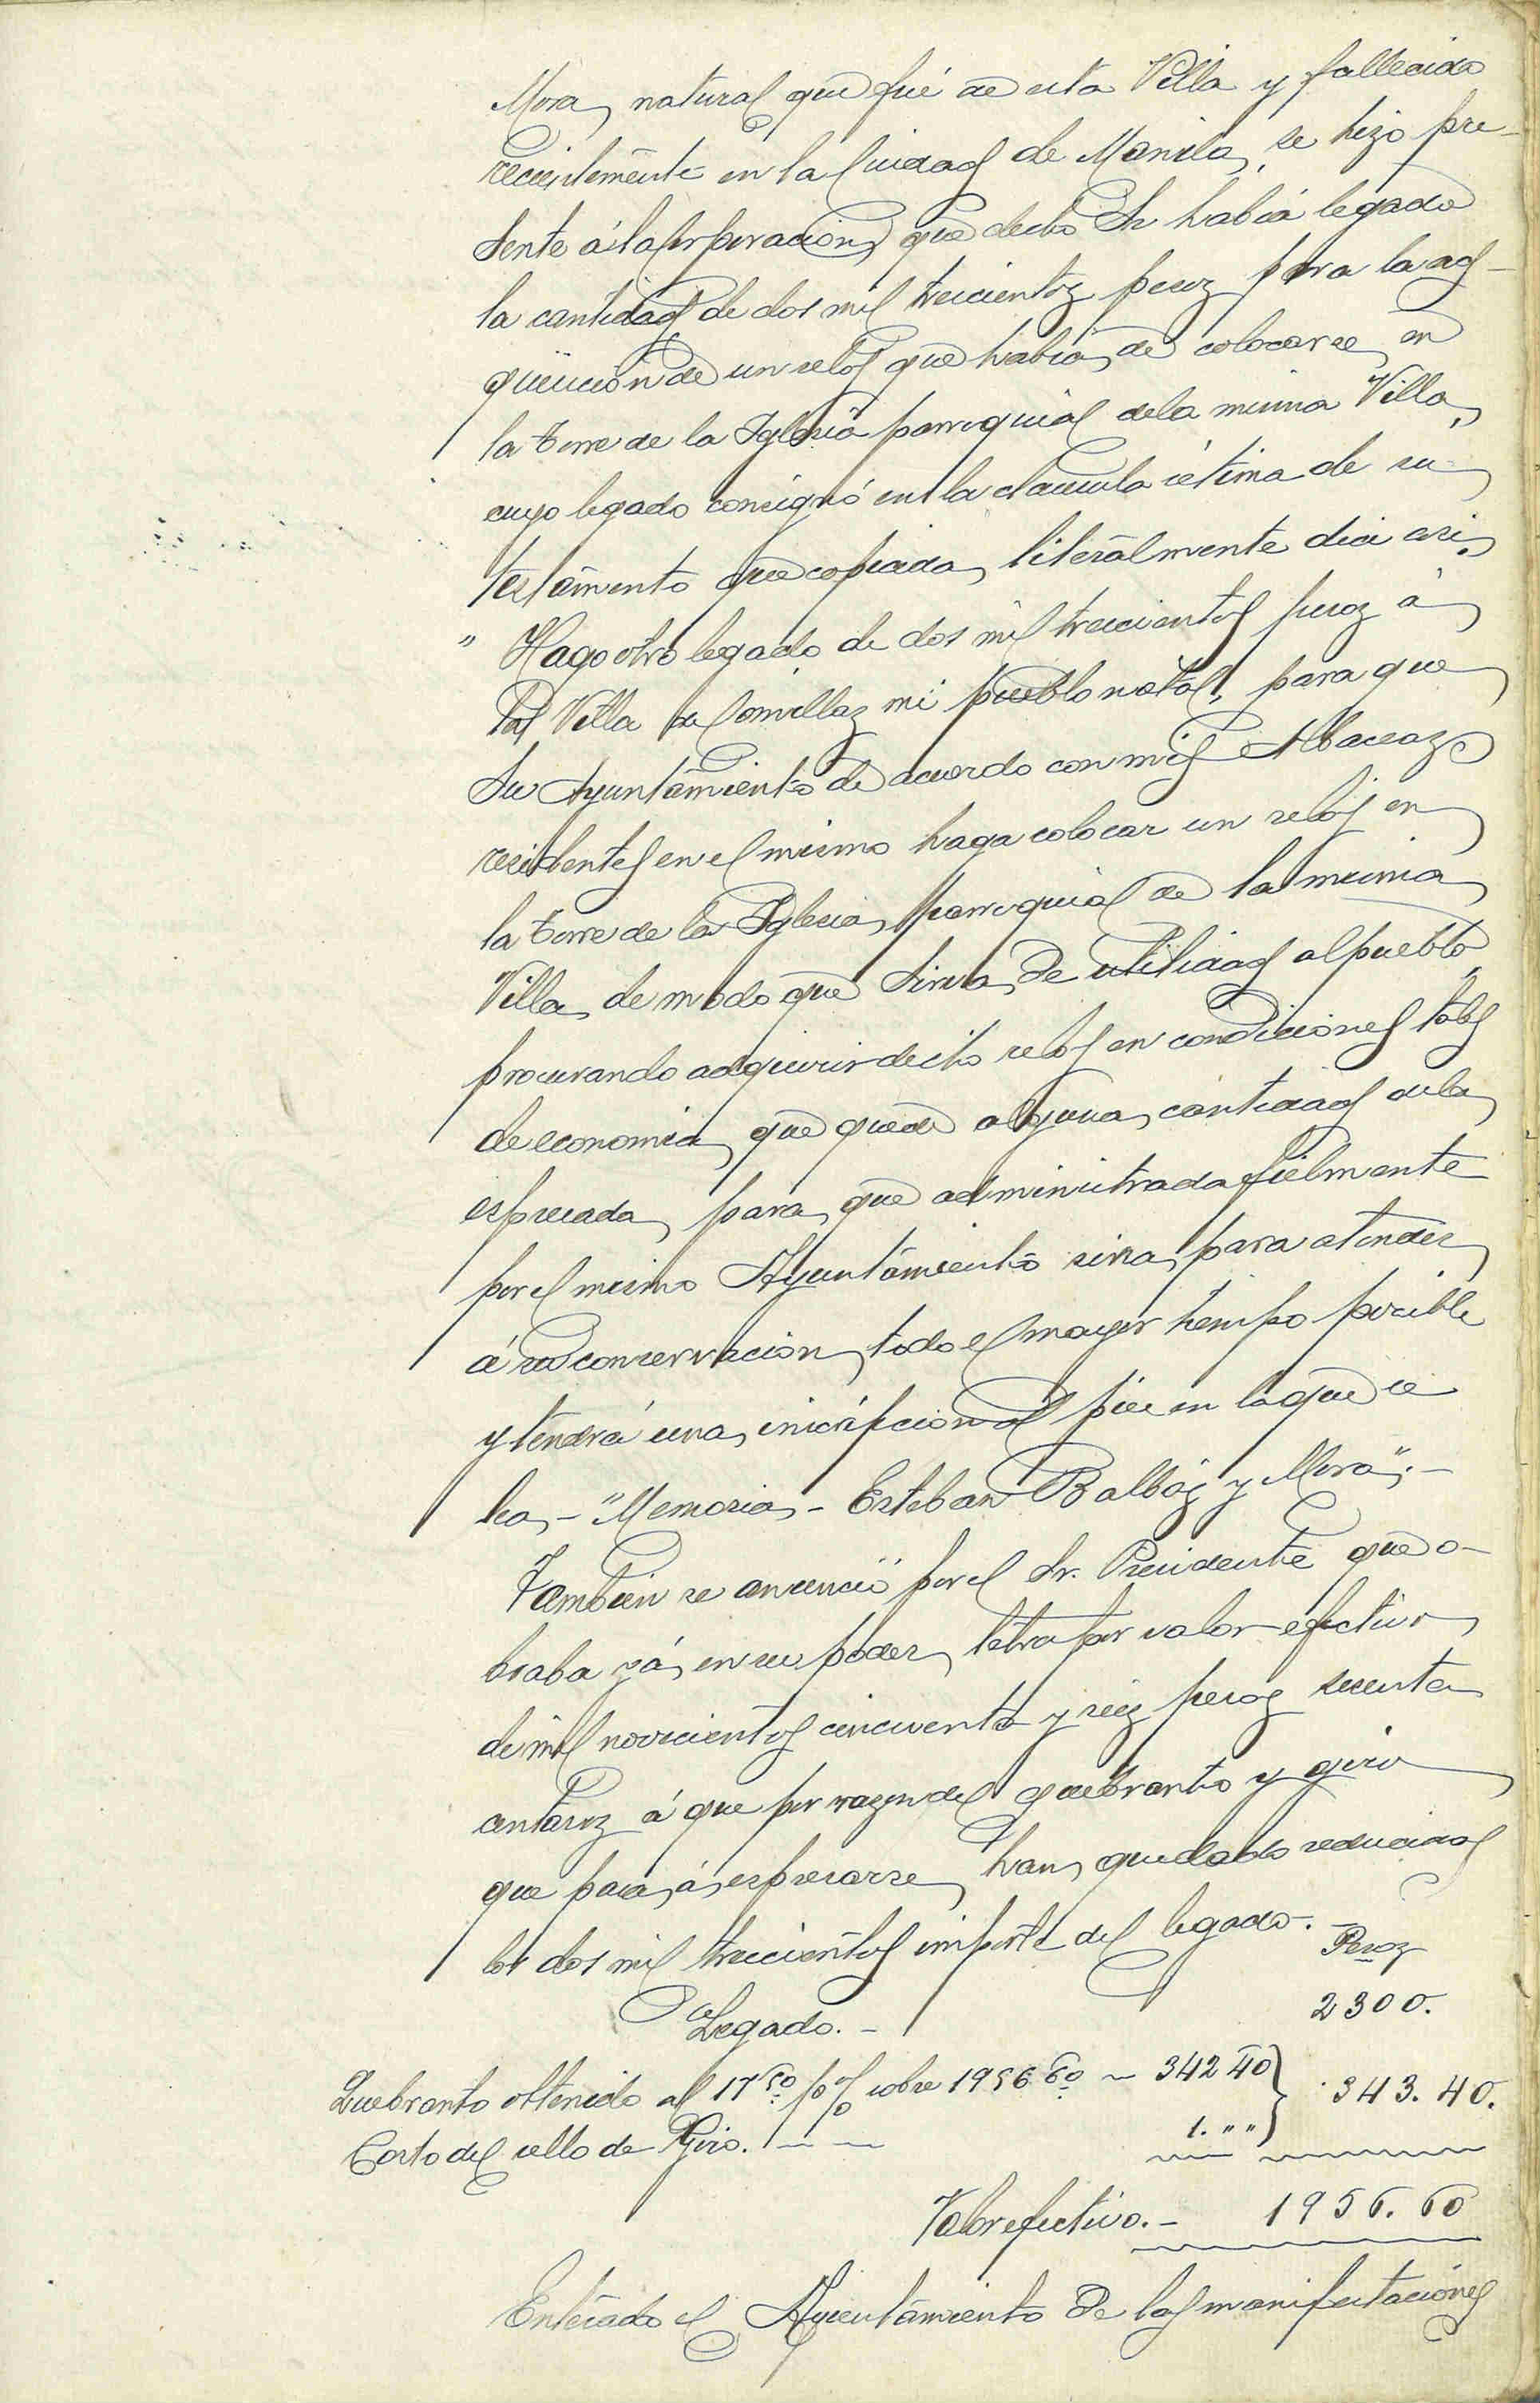 Mora, natural que fué de esta Villa y fallecido
recientemente en la Ciudad de Manila, se hizo pre-
sente á la Corporacion que dicho Sr había legado
la cantidad de dos mil trescientos pesos para la ad-
quisición de un reloj que había de colocarse en
la torre de la Iglesia parroquial de la misma Villa,
cuyo legado consignó en la clausula sétima de su
testamento que copiada literalmente dice asi:
" Hago otro legado de dos mil trescientos pesos á
la Villa de Comillas mi pueblo natal, para que
su Ayuntamiento de acuerdo con mis Albaceas
residentes en el mismo haga colocar un reloj en
la torre de la Iglesia parroquial de la misma
Villa, de modo que sirva de utilidad al pueblo
procurando adquirir dicho reloj en condiciones tales
de economia que quede alguna cantidad de la
espresada para que administrada fielmente
por el mismo Ayuntamiento sirva para atender
á su conservacion todo el mayor tiempo posible
y tendrá una inscripcion al pie en la que se
lea - "Memoria - Esteban Balbás y Mora". -
Tambien se anunció por el Sr. Presidente que o-
braba yá en su poder letra por valor efectivo
de mil novecientos cincuenta y seis pesos sesenta
centavos á que por razon del quebranto y giro
que pasa á espresarse, han quedado reducidos
los dos mil trescientos importe del legado. -
Pesos
Legado. - 2300.
Quebranto obtenido al 17 50 p% sobre 1956 60 - 342 40 } 343. 40.
Costo del sello de Giro. - - 1. " "
Valor efectivo. - 1956. 60
Enterado el Ayuntamiento de las manifestaciones